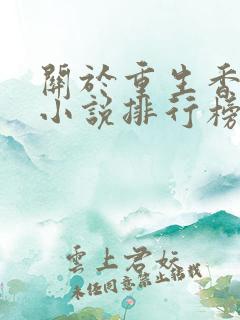 關於重生香
小説排行榜
雲上君妧
未经同意禁止搭栽